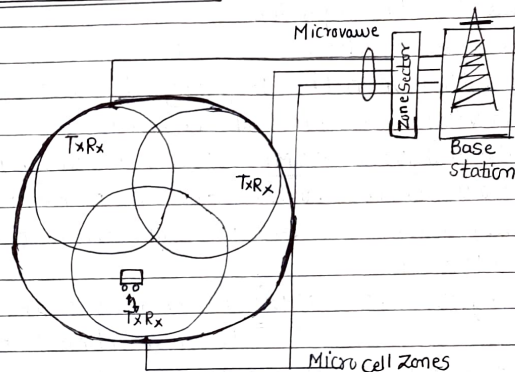 Microvawe
Zone Sector
Base
Station
TxRx
TxRx
TxRx
Micro cell Zones